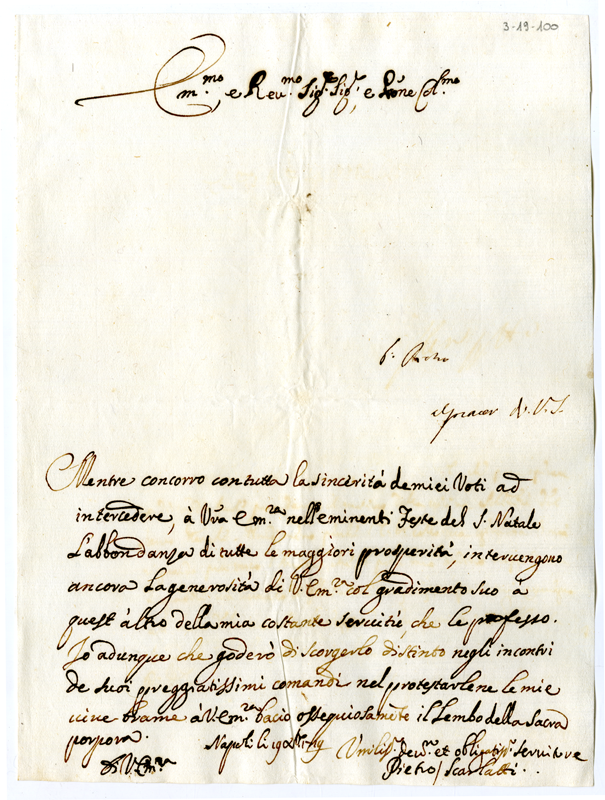 3-19-100
Em.mo, e Reu.mo Sig.r Sig.r, e Pne Col.mo
di V. S.
Mentre concorro con tutta la sincerità de miei Voti ad
intercedere, à Vra Em.za nell'eminenti Feste del S. Natale
L'abbondanza di tutte le maggiori prosperità,
ancora La generosità di V. Em.za col gradimento suo a
quest'altro della mia costante seruitù, che le professo.
Io adunque che goderò di scorgerlo distinto negli incontri
de suoi preggiatissimi comandi nel protestarlene le mie
viue brame à V. Em.za bacio ossequiosamēte il Lembo della Sacra
porpora. Napoli li
Di V. Em.za Umiliss.o deu.mo et obligatiss.o seruitore
Pietro Scarlatti